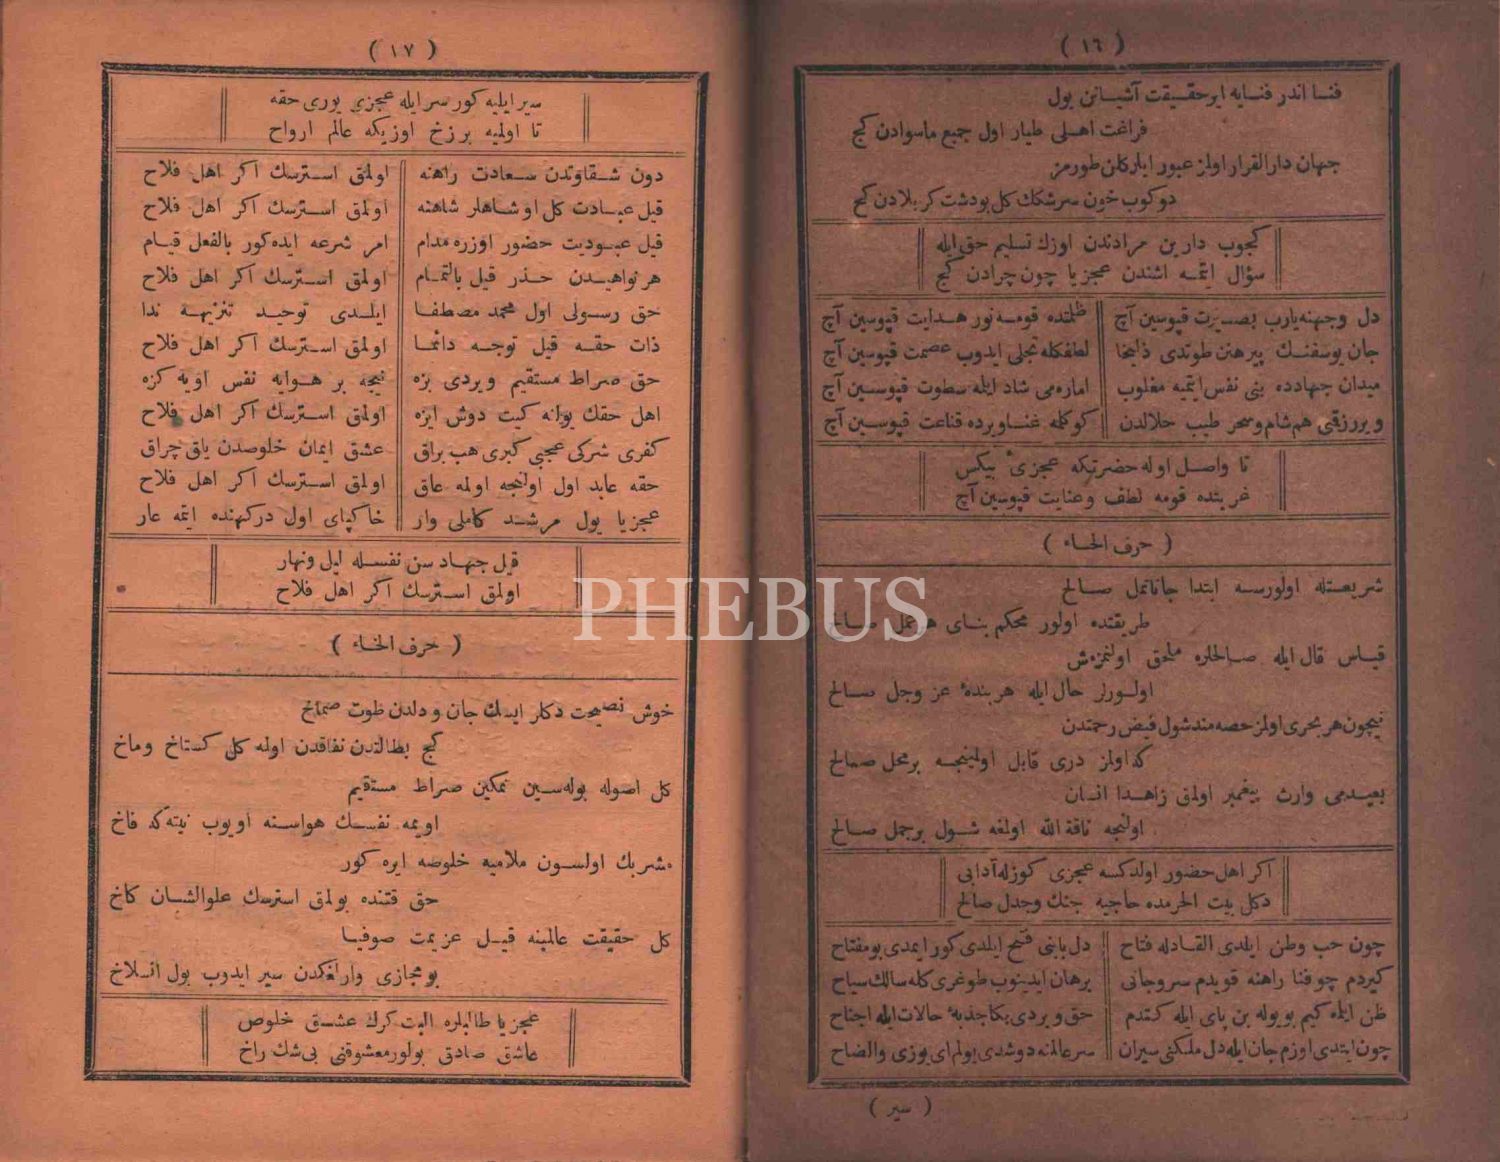 ( ١٦ )
فنا اندر فنايه ایر حقیقت آشیانن بول
فراغت اهلی طیار اول جمیع ماسوادن کچ
جهان دارالقرار اولمز عبور ایلر کلن طورمز
دوکوب خون سرشکك کل بودشت کربلادن کچ
کچوب دارین مرادندن اوزك تسلیم حق ایله
سؤال ایتمه اشندن عجزیا چون چرادن کچ
دل وجهنه یارب بصیرت قپوسین آچ ظلمتده قومه نور هدایت قپوسین آچ
جان یوسفنك پیرهنن طوتدی ذلیخا لطفکله تجلی ایدوب عصمت قپوسین آچ
میدان جهادده بنی نفس ایتمیه مغلوب اماره می شاد ایله سطوت قپوسین آچ
ویررزقمی هم شام وسحر طیب حلالدن کوکلمه غنا ویرده قناعت قپوسین آچ
تا واصل اوله حضرتکه عجزیٔ بیکس
غربتده قومه لطف وعنایت قپوسین آچ
( حرف الحاء )
شریعتله اولورسه ابتدا جانانمل صالح
طریقتده اولور محکم بنای هر عمل صالح
قیاس قال ایله صالحلره ملحق اولنمزمش
اولورلر حال ایله هر بندهٔ عز وجل صالح
نیچون هر بحری اولمز حصه مند شول فیض رحمتدن
که اولمز دری قابل اولمینجه بر محل صالح
بعیدمی وارث پیغمبر اولمق زاهدا انسان
اولنجه ناقة الله اولمغه شول بر جمل صالح
اکر اهل حضور اولدکسه عجزی کوزله آدابی
دکل بیت الحرمده حاجیه جنك وجدل صالح
چون حب وطن ایلدی القادله فتاح دل بابنی فتح ایلدی کور ایمدی بومفتاح
کیردم چو فنا راهنه قویدم سروجانی برهان ایدینوب طوغری کله سالك سیاح
ظن ایله کیم بویوله بن پای ایله کتدم حق ویردی بکا جذبهٔ حالات ایله اجناح
چون ایتدی اوزم جان ایله دل ملکنی سیران سرعالمنه دوشدی یولم ای یوزی والضاح
( سیر )
( ١٧ )
سیر ایلیه کور سر ایله عجزی یوری حقه
تا اولمیه برزخ اوزیکه عالم ارواح
دون شقاوتدن سعادت راهنه اولمق استرسك اکر اهل فلاح
قیل عبادت کل اوشاهلر شاهنه اولمق استرسك اکر اهل فلاح
قیل عبودیت حضور اوزره مدام امر شرعه ایده کور بالفعل قیام
هر نواهیدن حذر قیل بالتمام اولمق استرسك اکر اهل فلاح
حق رسولی اول محمد مصطفا ایلدی توحید تنزیهه ندا
ذات حقه قیل توجه دائما اولمق استرسك اکر اهل فلاح
حق صراط مستقیم ویردی بزه نیجه بر هوایه نفس اویه کزه
اهل حقك یولنه کیت دوش ایزه اولمق استرسك اکر اهل فلاح
کفری شرکی عجبی کبری هب براق عشق ایمان خلوصدن یاق چراق
حقه عابد اول اولنجه اولمه عاق اولمق استرسك اکر اهل فلاح
عجزیا یول مرشد کاملی وار خاکپای اول درکهنده ایتمه عار
قیل جهاد سن نفسله لیل ونهار
اولمق استرسك اکر اهل فلاح
( حرف الخاء )
خوش نصیحت دکلر ایسك جان ودلدن طوت صماخ
کچ بطالتدن نفاقدن اوله کل کستاخ وماخ
کل اصوله بوله سین تمکین صراط مستقیم
اویمه نفسك هواسنه اویوب نیته که فاخ
مشربك اولسون ملامیه خلوصه ایره کور
حق قتنده بولمق استرسك علوالشان کاخ
کل حقیقت عالمینه قیل عزیمت صوفیا
بو مجازی وارلغکدن سیر ایدوب بول انسلاخ
عجزیا طالبلره البت کرك عشق خلوص
عاشق صادق بولور معشوقنی بی شك راخ
PHEBUS